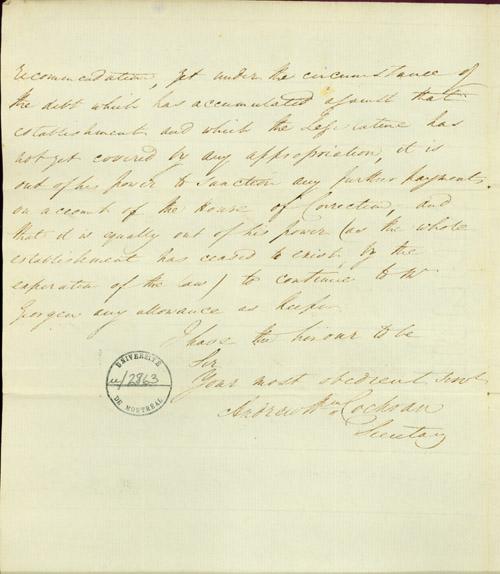 recommendation, yet under the circumstance of
the debt which has accumulated against that
establishment and which the Legislature has
not yet covered by any appropriation, it is
out of his power to sanction any further payments
on account of the House of Correction, and
that it is equally out of his power (as the whole
establishment has ceased to exist, by the
expiration of the law) to continue to Mr
Goergen any allowance as keeper
I have the honour to be
Sir
Your most obedient Servt
Andrew Wm Cochran
Secretary
UNIVERSITÉ
u/2963
DE MONTRÉAL